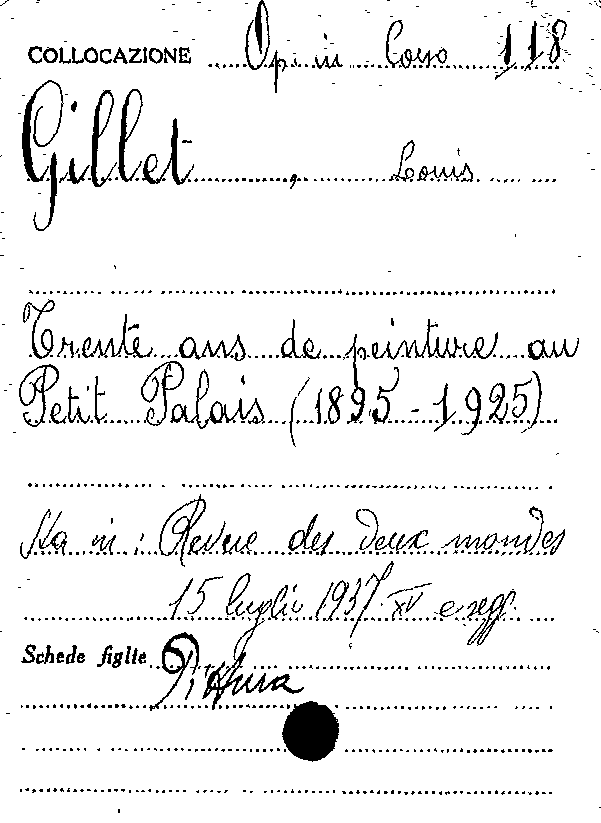 COLLOCAZIONE Op. in Corso 118
Gillet, Louis
Trente ans de peinture au
Petit Palais (1895-1925)
Sta in: Revue des deux mondes
15 luglio 1937. XV e segg.
Schede figlie
Pittura